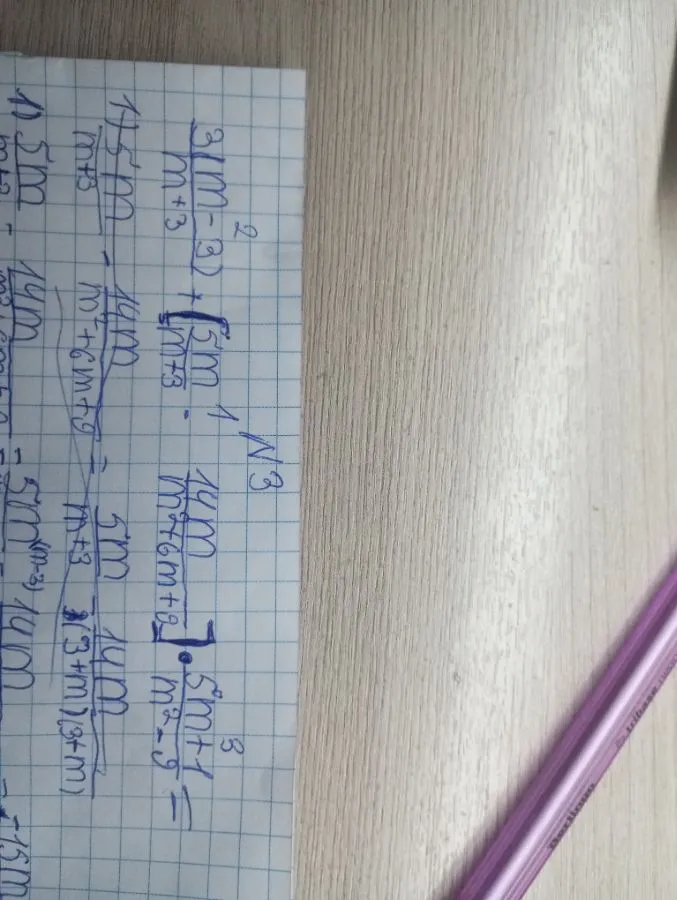 N3
2 1 3
3(m-3)/m+3 + [5m/m+3 - 14m/m²+6m+9] • 5m+1/m²-9 =
1) 5m/m+3 - 14m/m²+6m+9 = 5m/m+3 - 14m/(3+m)(3+m)
1) 5m/m+3 - 14m/m²+6m+9 = 5m(m-3) 14m - -15m